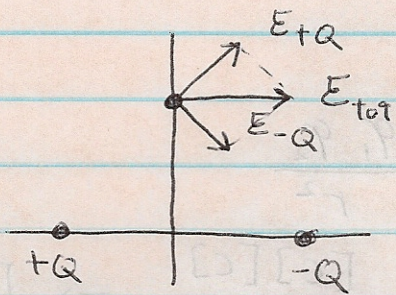 E+Q
Etot
E-Q
+Q
-Q